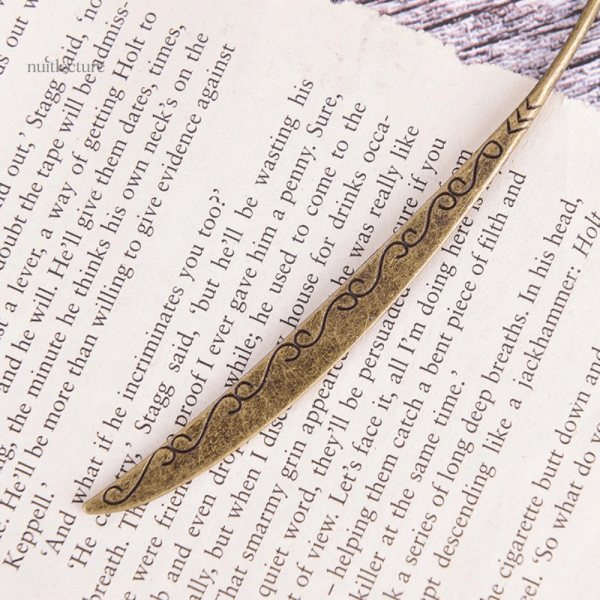 nuitlecture
out,' Stagg said, 'no
doubt the tape will be admiss-
a lever, a way of getting Holt to
and he will. He'll give them dates, times,
the minute he thinks his own neck's on the
He'll be more than willing to give evidence against
Keppell.'
'And what if he incriminates you too?'
He Stagg said, 'but he'll be wasting his
breath. proof I ever gave him a penny. Sure,
were while; he used to come to the
and even house for drinks occa-
ally, but when I was really like
that smarmy grin appeared if you
quiet word, they'll be persuaded
of view. Let's face it, all I'm doing here
– helping them catch a bent piece of filth and
killer at the same time.'
a series of long deep breaths. In his head,
descending like a jackhammer: Holt
cigarette butt down and
'So what do